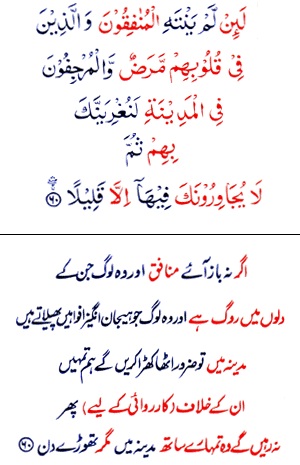 لَئِنْ لَّمْ يَنْتَهِ الْمُنٰفِقُوْنَ وَ الَّذِيْنَ
فِيْ قُلُوْبِهِمْ مَّرَضٌ وَّالْمُرْجِفُوْنَ
فِي الْمَدِيْنَةِ لَنُغْرِيَنَّكَ
بِهِمْ ثُمَّ
لَا يُجَاوِرُوْنَكَ فِيْهَآ اِلَّا قَلِيْلًا ۶۰
اگر نہ باز آئے منافق اور وہ لوگ جن کے
دلوں میں روگ ہے اور وہ لوگ جو ہیجان انگیز افواہیں پھیلاتے ہیں
مدینہ میں تو ضرور اٹھا کھڑا کریں گے ہم تمہیں
ان کے خلاف (کارروائی کے لیے) پھر
نہ رہیں گے وہ تمہارے ساتھ مدینہ میں مگر تھوڑے دن ۶۰